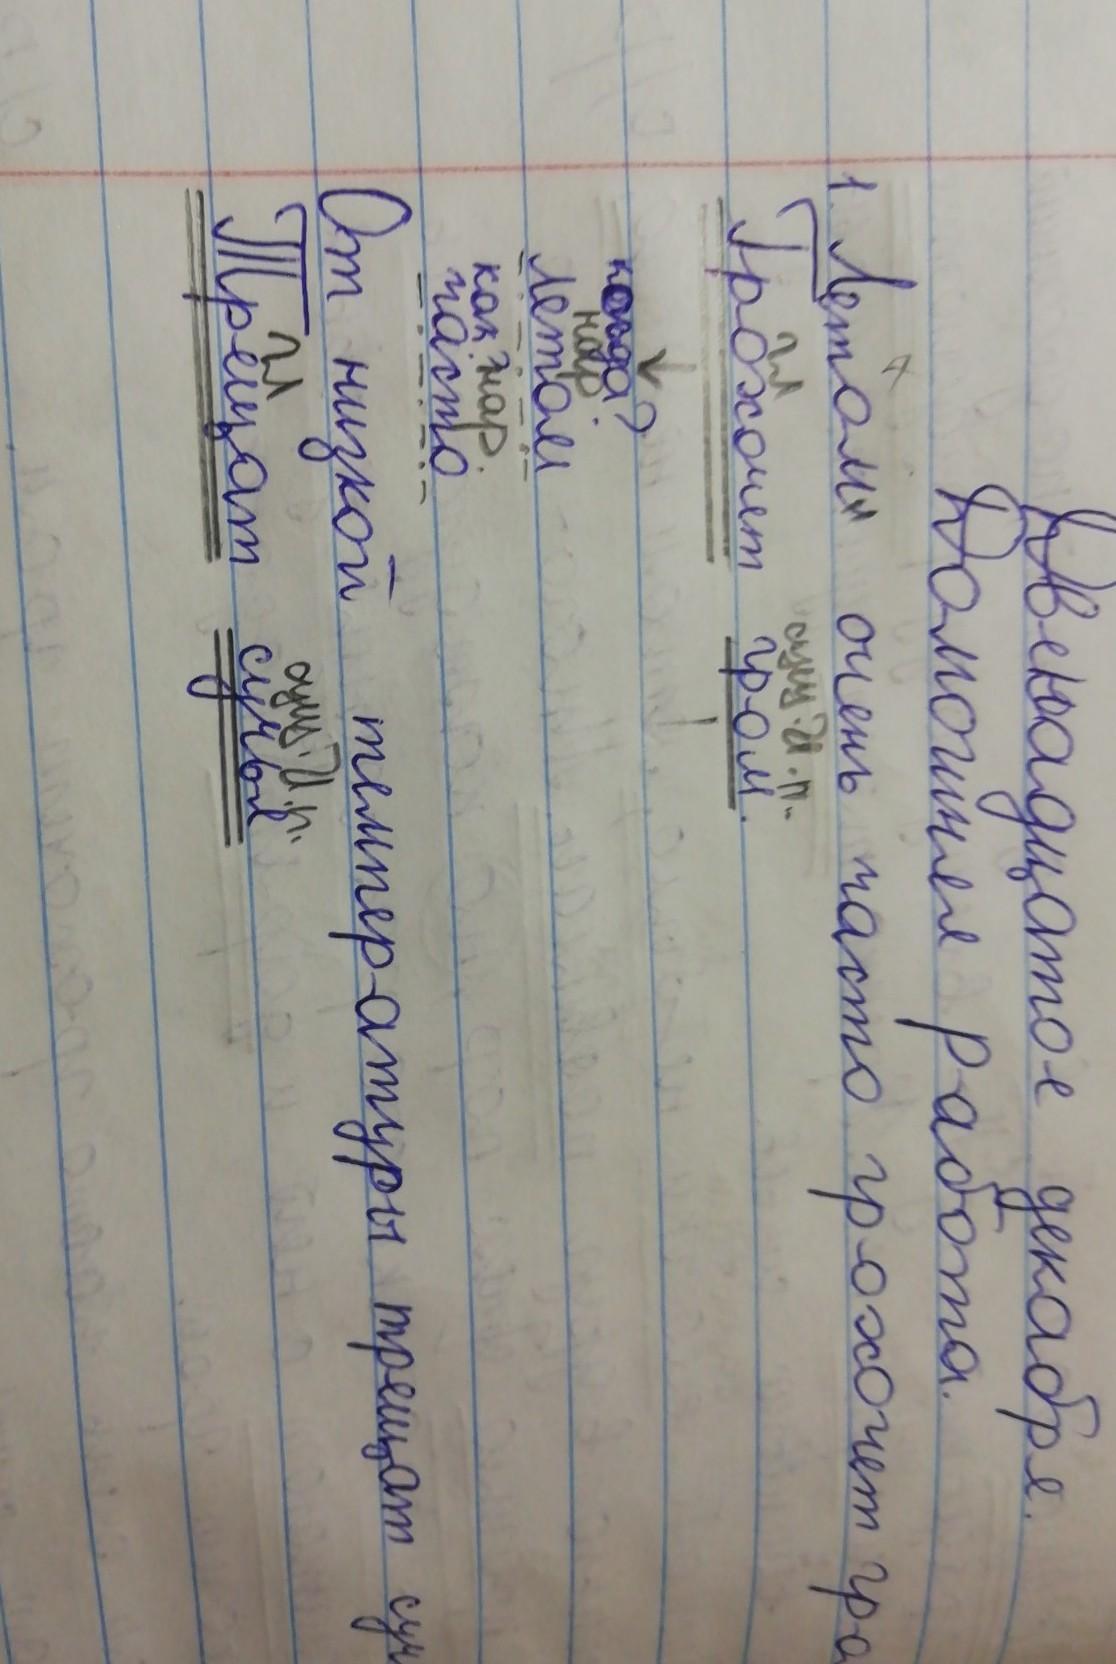 Двенадцатое декабря.
Домашняя работа.
1. Летом очень часто грохочет гро
гл сущ. И. п.
Грохочет гром.
когда?
нар
летом
как? нар.
часто
От низкой температуры трещат суч
гл сущ. И. п.
Трещат сучья